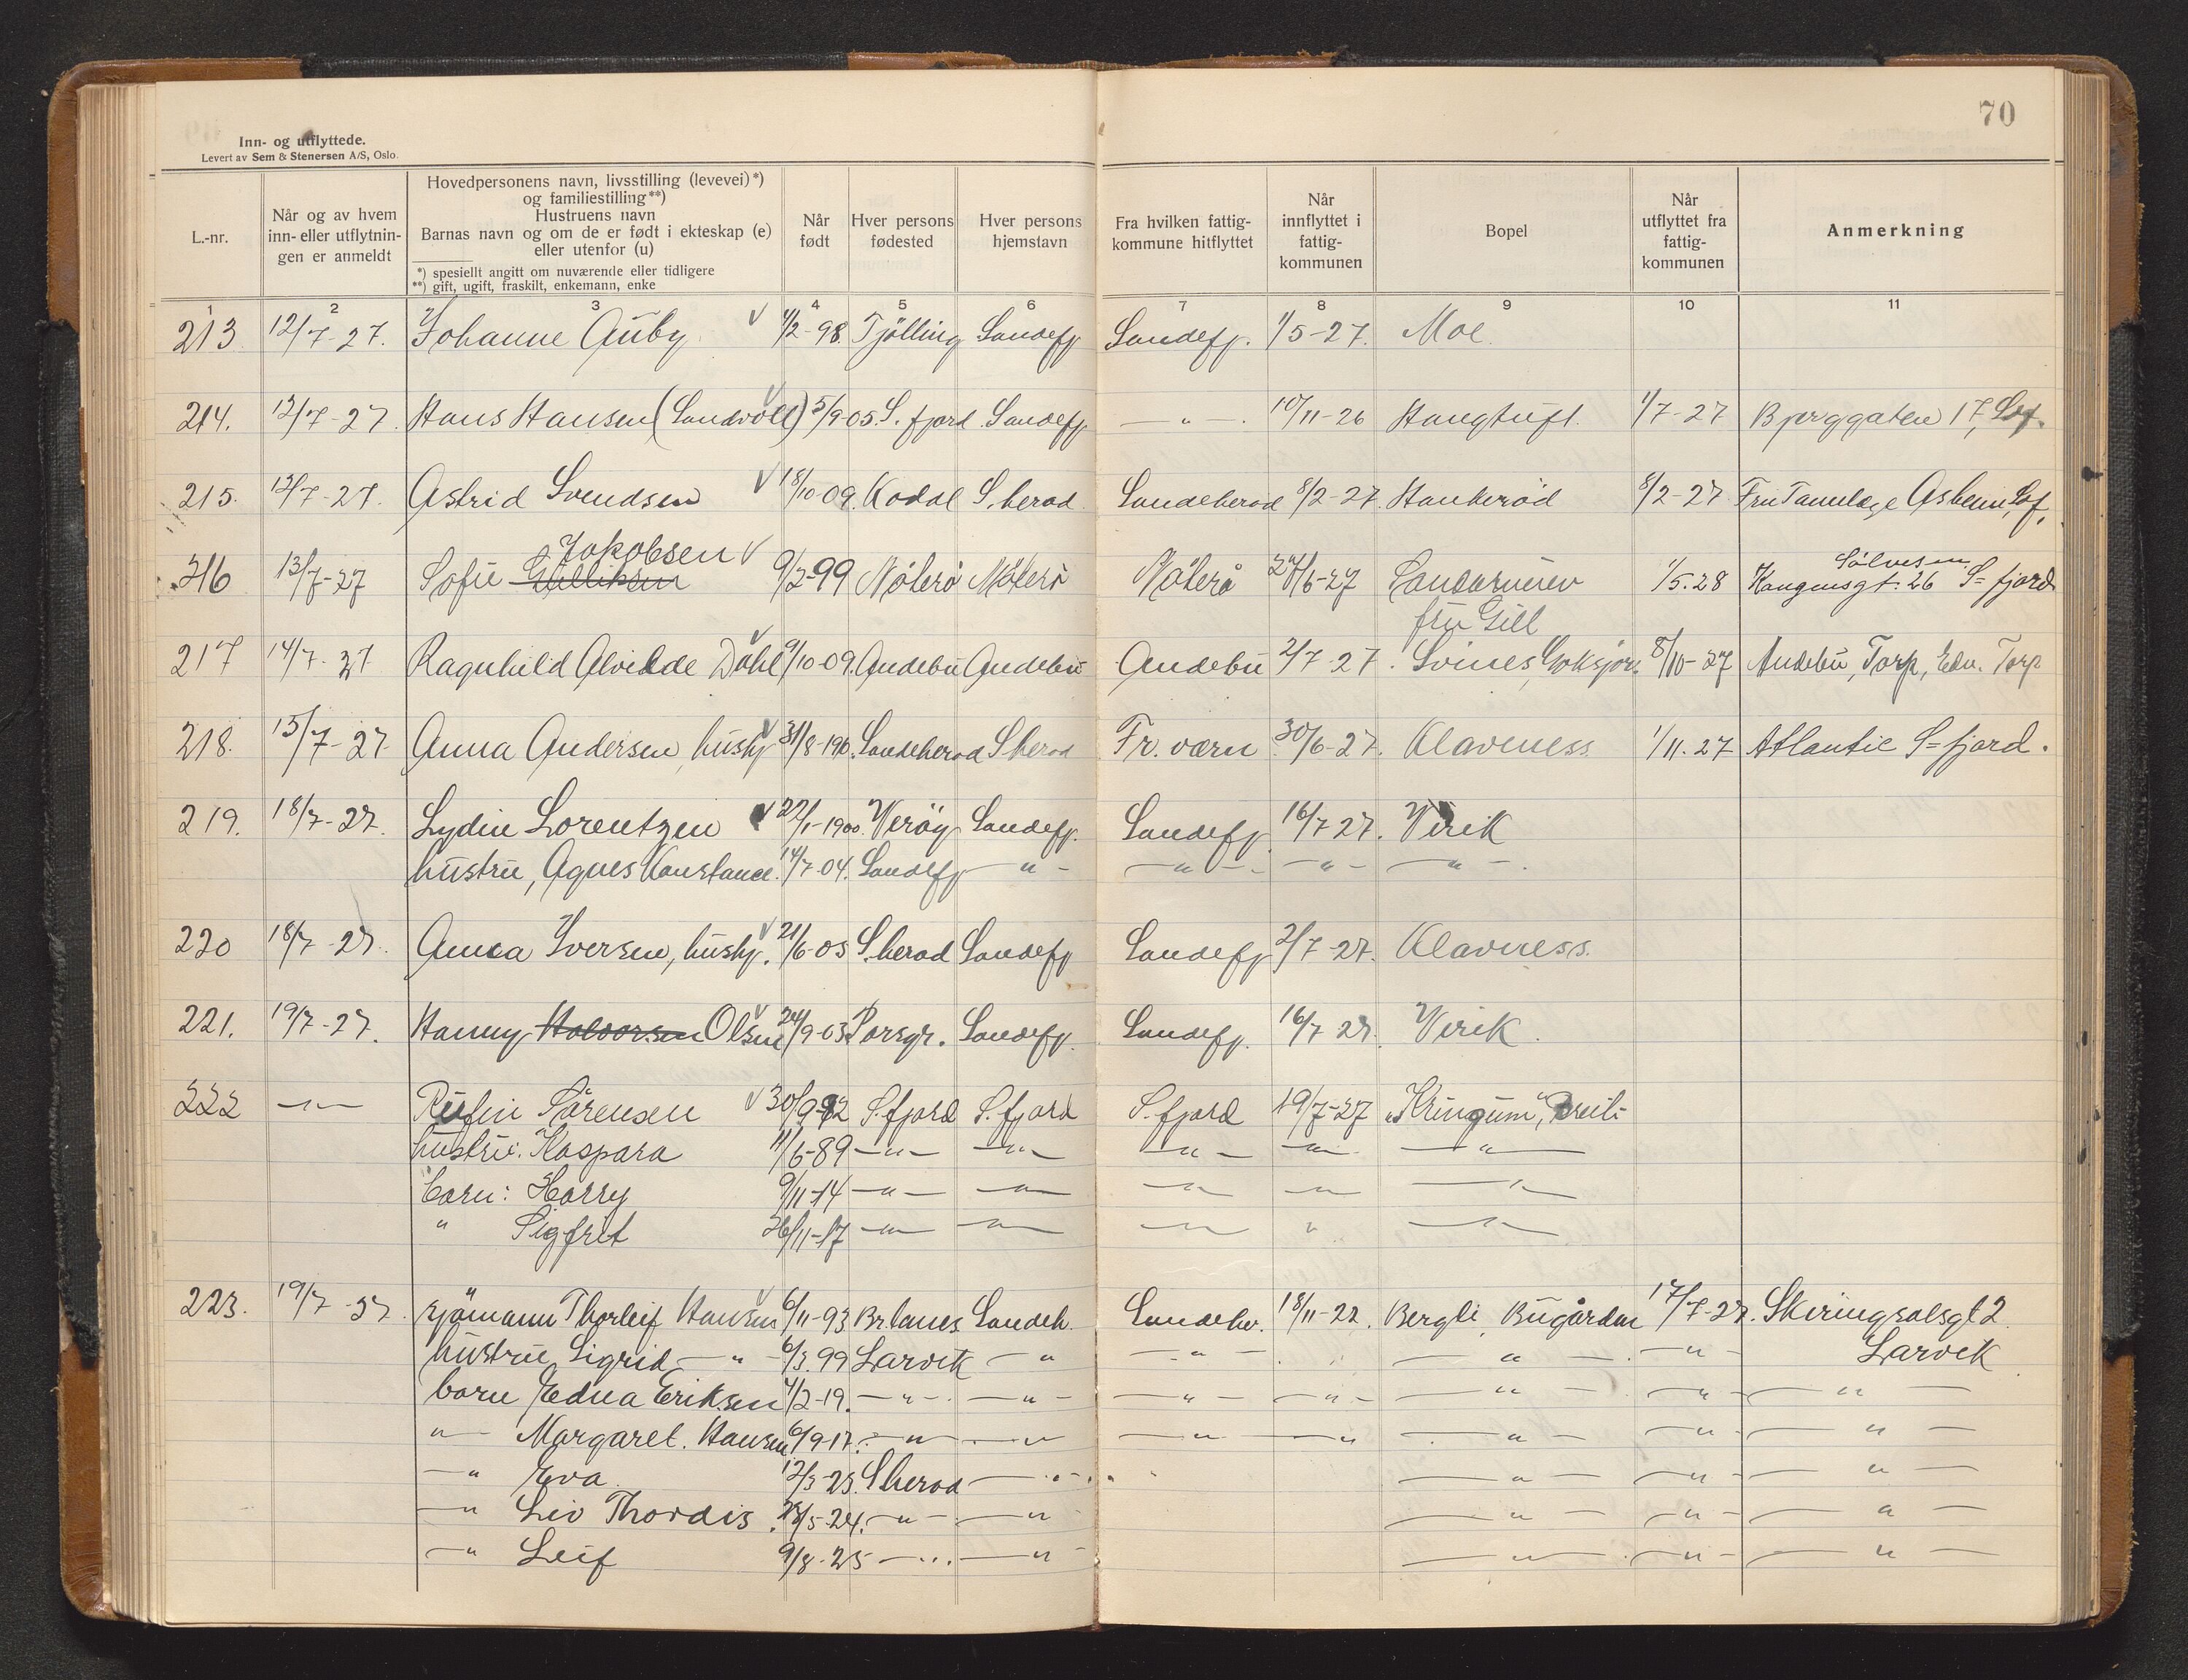 70
Inn- og utflyttede.
Levert av Sem & Stenersen A/S, Oslo.
L.-nr.
Når og av hvem
inn- eller utflytnin-
gen er anmeldt
Hovedpersonens navn, livsstilling (levevei)*)
og familiestilling**)
Hustruens navn
Barnas navn og om de er født i ekteskap (e)
eller utenfor (u)
*) spesiellt angitt om nuværende eller tidligere
**) gift, ugift, fraskilt, enkemann, enke
Når
født
Hver persons
fødested
Hver persons
hjemstavn
Fra hvilken fattig-
kommune hitflyttet
Når
innflyttet i
fattig-
kommunen
Bopel
Når
utflyttet fra
fattig-
kommunen
Anmerkning
1 2 3 4 5 6 7 8 9 10 11
213 12/7-27. Johanne Auby √ 4/2-98. Tjølling Sandefj. Sandefj. 1/5-27. Moe.
214. 12/7-27. Hans Hansen (Sandvoll) √ 5/9-05. S.fjord. Sandefj. —"— 10/11-26 Haugtuft. 1/7-27 Bjerggaten 17, Sef.
215. 12/7-27. Astrid Svendsen √ 18/10-09. Kodal S.herad. Sandeherad 8/2-27. Haukerød 8/2-27 Fru Tannlæge Asheim, Sef.
Jakobsen √ Sølvesen
216 13/7-27 Sofie Gulliksen 9/2-99 Nøterø Nøterø Nøterø 24/6-27 Sandarveien 1/5.28 Kongensgt. 26 S=fjord
fru Gill
217 14/7-27 Ragnhild Alvilde Dahl √ 9/10-09. Andebu Andebu Andebu 2/7-27. Svines, Goksjø. 8/10-27 Andebu, Torp, Edv. Torp
218. 15/7-27. Anna Andersen, hushj √ 31/8-190. Sandeherad S.herad Fr.værn 30/6-27. Klavness 1/11.27 Atlantic S=fjord.
219. 18/7-27. Lydin Lorentzen √ 22/1-1900. Værøy Sandefj. Sandefj. 16/7-27. Virik
hustru, Agnes Konstance. 14/7-04. Sandefj —"— —"— —"— —"—
220 18/7-27. Anna Iversen, hushj. √ 21/6-05 S.herad Sandefj Sandefj 2/7-27. Klavness.
221. 19/7-27. Hanny Halvorsen Olsen √ 24/9-03. Porsgr. Sandefj. Sandefj. 16/7-27. Virik.
222 —"— Rufin Sørensen √ 30/9-92 S.fjord S.fjord S.fjord 19/7-27 „Kringum",
hustru: Kaspara 11/6-89 —"— —"— —"— —"— —"—
barn: Harry 9/11-14 —"— —"— —"— —"— —"—
" Sigfret 26/11-17 —"— —"— —"— " —"—
223. 19/7-27. sjømann Thorleif Hansen √ 6/11-93 Br.lanes Sandeh. Sandehr. 18/11-22. Bergli, Bugården 17/7-27. Skiringsalsgt 2
hustru Sigrid —"— 6/3.99 Larvik —" —"— —"— —"— Larvik
barn Edna Eriksen 4/2-19. —"— —"— —"— —"— —"— —"— —"—
—"— Margaret. Hansen 6/9-17. —"— —"— —"— —"— —"— —"— —"—
—" Eva 12/3-23. S.herad —"— —"— —"— —"—
—" Liv Thordis. 28/5-24. —"— —"— —"— —"— —"—
—" Leif 9/8-25 —"— —"— —"— —"— —"—